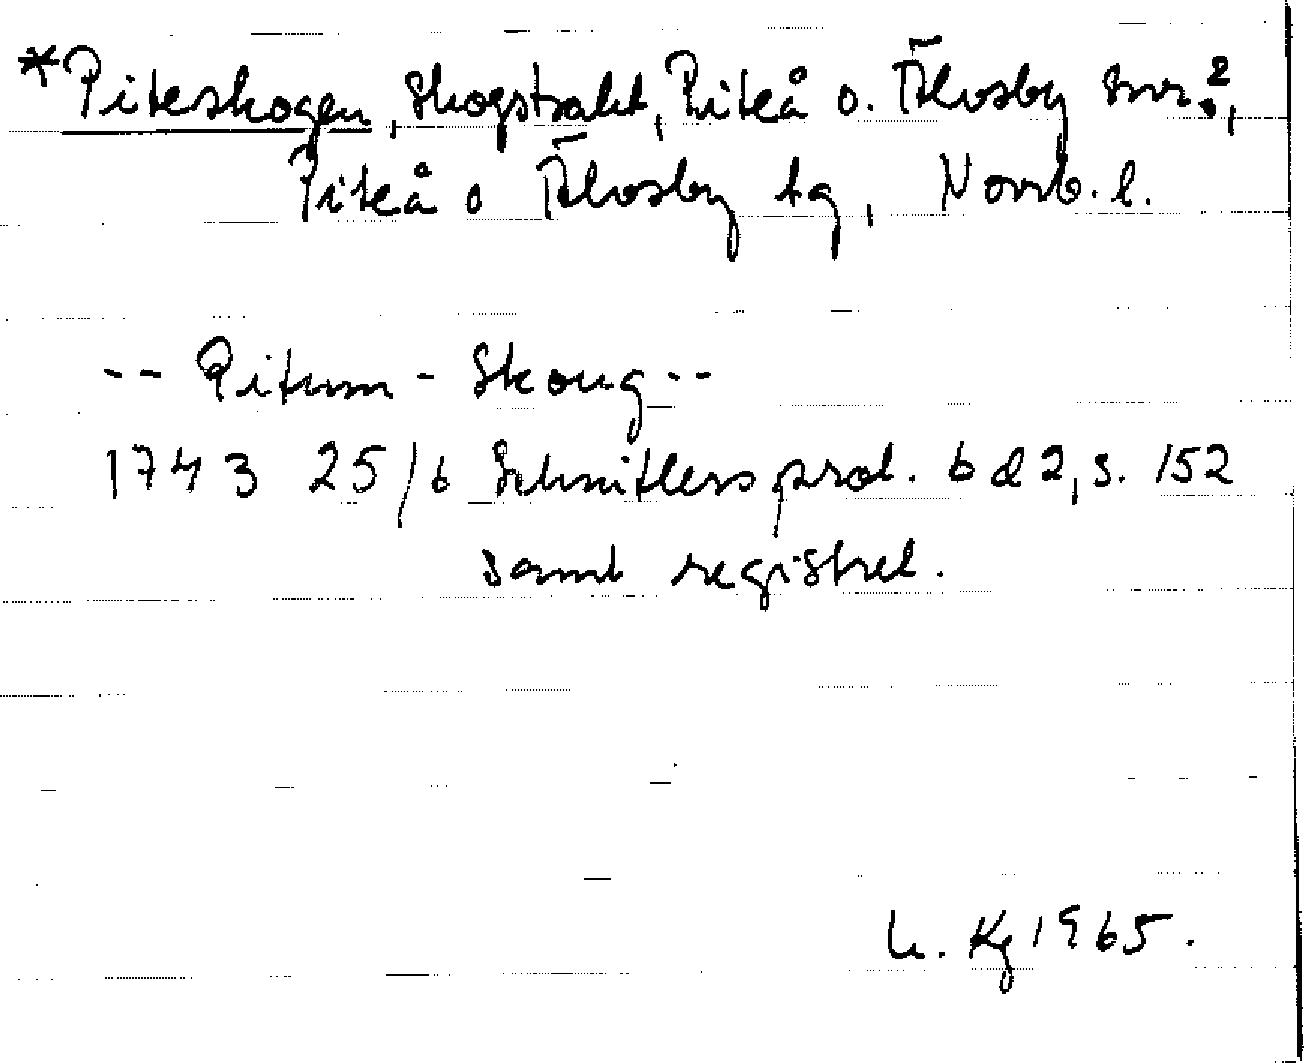 *Piteskogen, skogstrakt, Piteå o. Älvsby snr?,
Piteå o Älvsby tg, Norrb. l.
-- Pitum - Skoug --
1743 25/6 Schnitlers prot. bd 2, s. 152
samt registret.
h. Kg 1965.